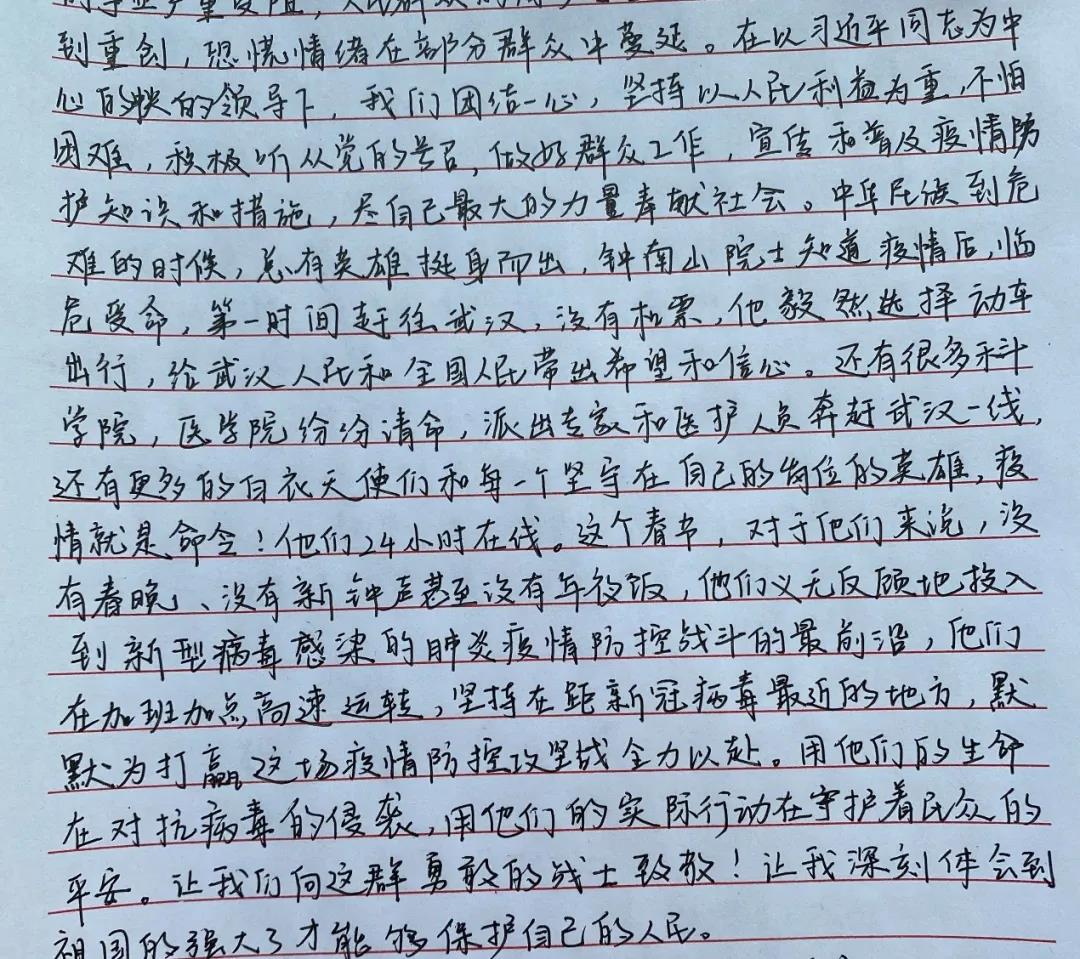 到重创，恐慌情绪在部分群众中蔓延。在以习近平同志为中
心的党的领导下，我们团结一心，坚持以人民利益为重，不怕
困难，积极听从党的号召，做好群众工作，宣传和普及疫情防
护知识和措施，尽自己最大的力量奉献社会。中华民族到危
难的时候，总有英雄挺身而出，钟南山院士知道疫情后，临
危受命，第一时间赶往武汉，没有机票，他毅然选择动车
出行，给武汉人民和全国人民带出希望和信心。还有很多科
学院，医学院纷纷请命，派出专家和医护人员奔赶武汉一线，
还有更多的白衣天使们和每一个坚守在自己的岗位的英雄，疫
情就是命令！他们24小时在线。这个春节，对于他们来说，没
有春晚、没有新钟声甚至没有年夜饭，他们义无反顾地投入
到新型病毒感染的肺炎疫情防控战斗的最前沿，他们
在加班加点高速运转，坚持在距新冠病毒最近的地方，默
默为打赢这场疫情防控攻坚战全力以赴。用他们的生命
在对抗病毒的侵袭，用他们的实际行动在守护着民众的
平安。让我们向这群勇敢的战士致敬！让我深刻体会到
祖国的强大了才能够保护自己的人民。